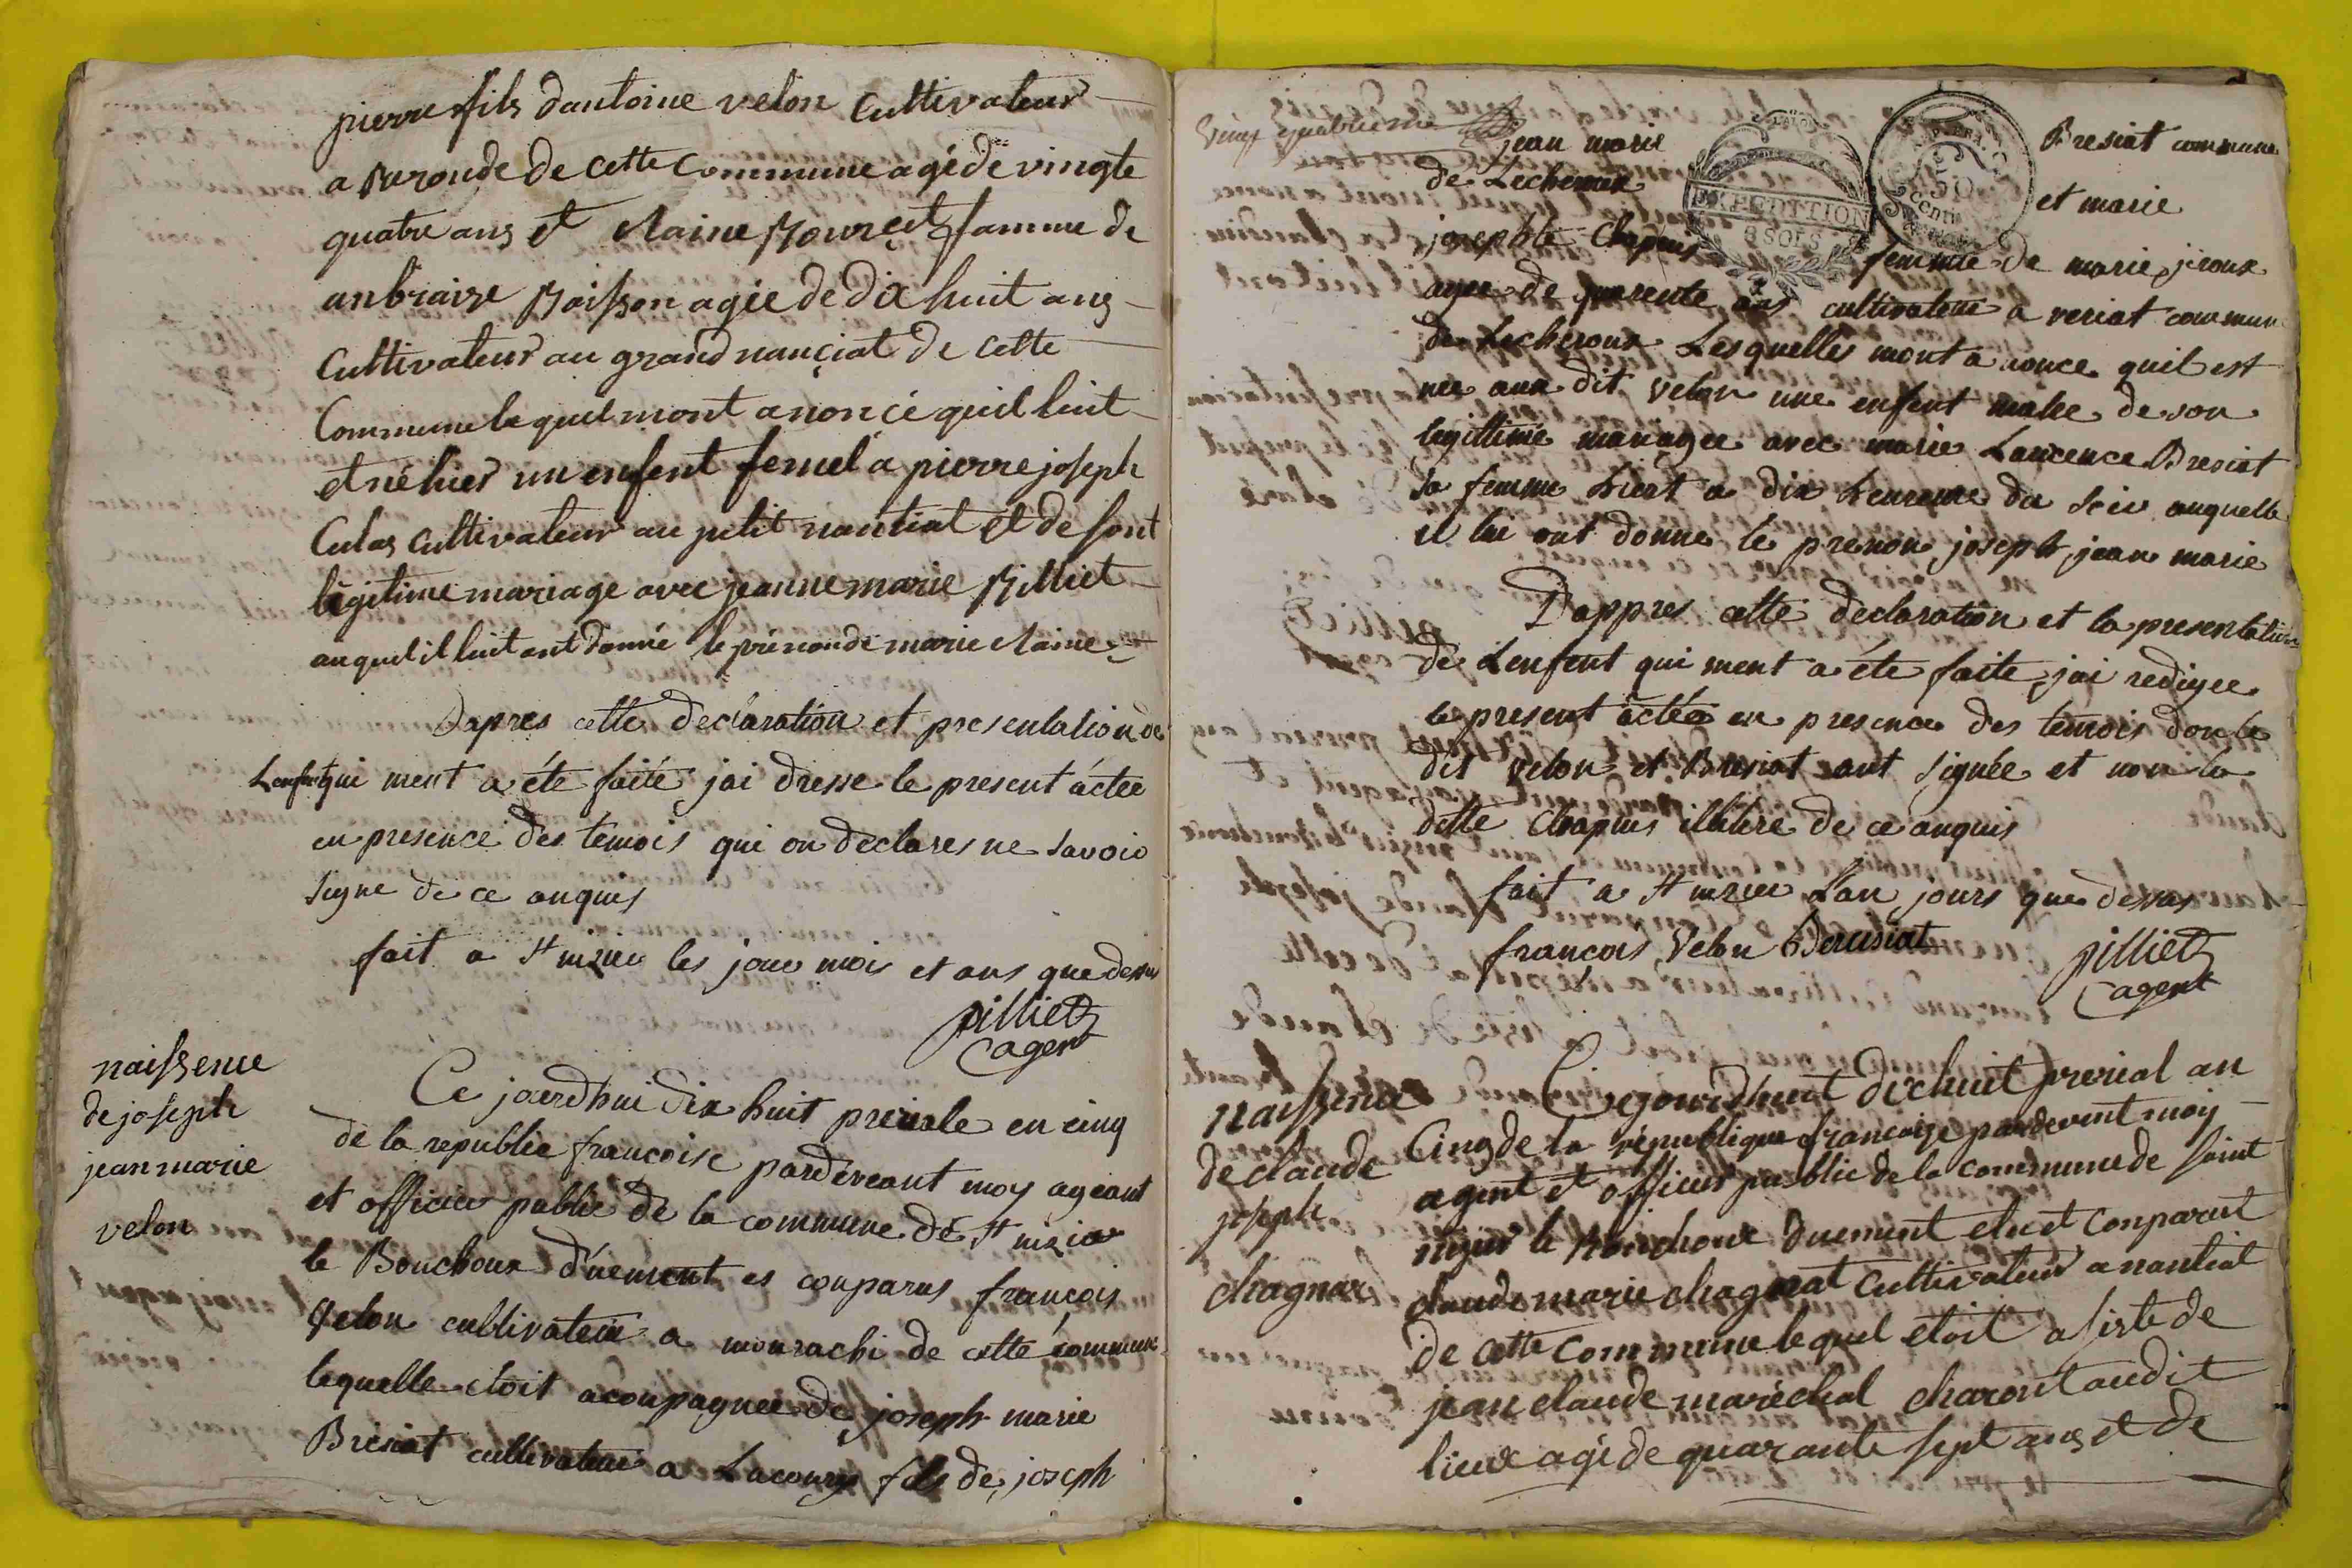 pierre fils dantoine velon Cultivateur
a Buronde de cette Commune agé de vingte
quatre ans et Claine Bourcet famme de
anbraise Boisson agée de dix huit ans
Cultivateur au grand nançiat de cette
Commune le quel mont anoncé quil luit
et né hier un enfent femel a pierre joseph
Culas Cultivateur au petit nantiat et de sont
légitime mariage avec jeanne marie Billiet
auquel il luit ont donné le prénon de marie Claine
Dapres cette declaration et presentation de
Lenfent qui ment a éte faite jai dresse le present actée
en presence des temois qui on declares ne savoir
signe de ce anquis
fait a St nizier les jour mois et ans que dessus
pilliet
agent
naissence
de joseph
jean marie
velon
Ce jourdhui dix huit preriale en cinq
de la republic francoise pardeveant moy ageant
et officier public de la commune de St nizier
le Bouchoux d'uement es conparus françois
Velon cultivateur a monrachi de cette commune
lequelle etoit aconpagnée de joseph marie
Bresiat cultivateur a Lacourt fils de joseph
vingt quatrieme
jean marie Bresiat commune
de Lecheroux et marie
josephte Chapuis femme de marie jiroux
agee de quarente ans cultivateur a veriat commun
de Lecheroux Lesquelles mont a nonce quil est
nee aux dit velon une enfent malee de son
legittime managee avec marie Laurence Bresiat
sa femme hiert a dix heureure du soir auquelle
il lui ont donne le prenon joseph jean marie
Dappres cette declaration et la presentation
de Lenfent qui ment a éte faite jai redigee
le present actée en presence des temois don le
dit velon et Bresiat ont signée et non la
ditte Chapuis illitere de ce anquis
fait a St nizier Lan jours que dessus
francois Velon Bereisiat
pilliet
agent
naissence
de claude
joseph
chagnar
Cejourdhuit dixhuit prerial an
Cinq de la république françoize pardevent moy
agent et officier public de la commune de saint
nizier le Bouchoux duement elu et Conparut
claude marie chagnat Cultivateur a nantiat
de cette Commune lequel etoit asiste de
jean claude maréchal charont audit
lieux agé de quarante sept ans et de